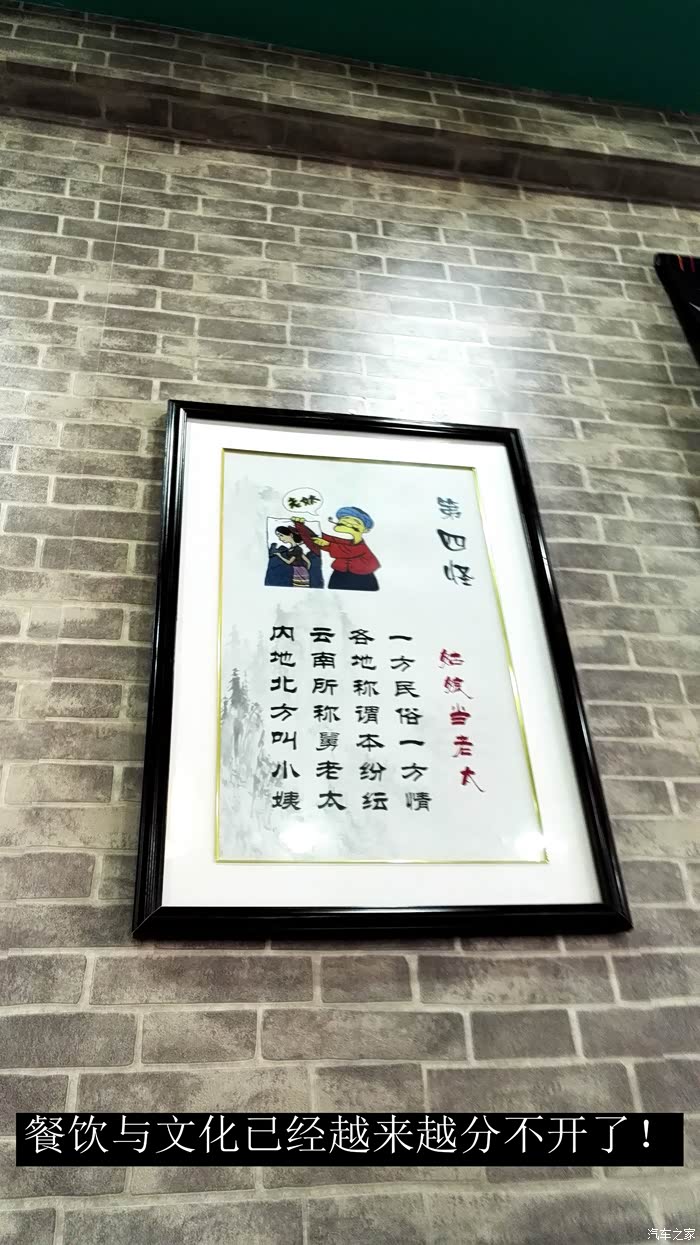 第四怪
姑娘当老太
老太
一方民俗一方情
各地称谓本纷纭
云南所称舅老太
内地北方叫小姨
餐饮与文化已经越来越分不开了！
汽车之家